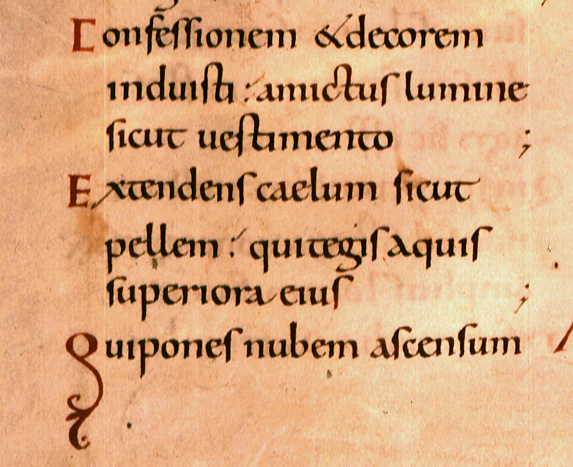 Confessionem & decorem
induisti : amictus lumine
sicut uestimento ;
Extendens caelum sicut
pellem : qui tegis aquis
superiora eius ;
Qui pones nubem ascensum